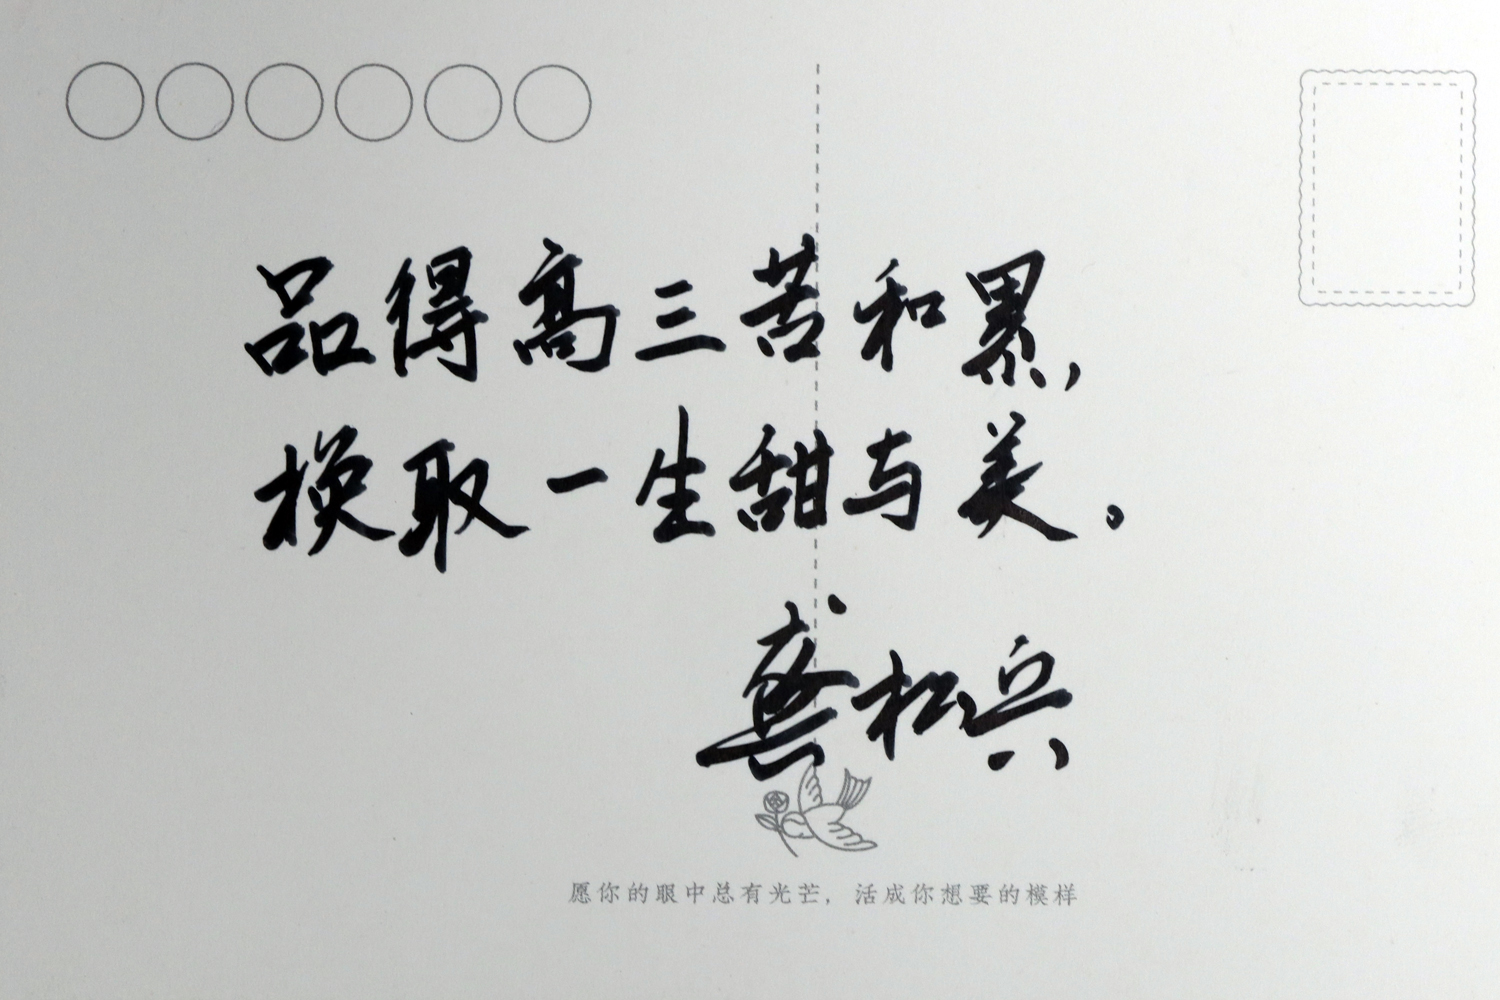 品得高三苦和累，
换取一生甜与美。
龚松兵
愿你的眼中总有光芒，活成你想要的模样